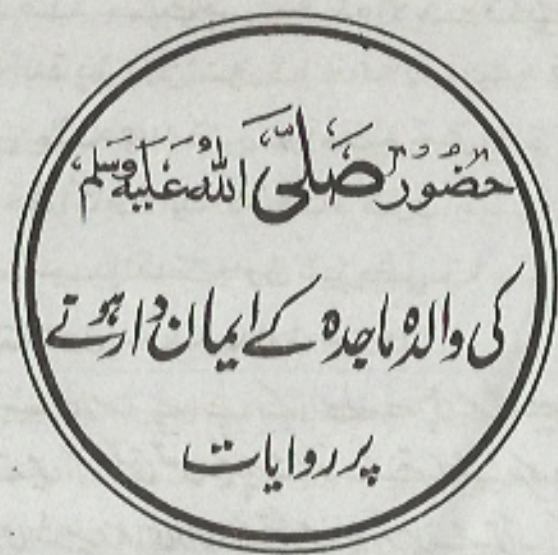 حضور صَلَّی اللّٰہُ عَلَیْہِ وَسَلَّم
کی والدہ ماجدہ کے ایمان دار ہوتے
پر روایات